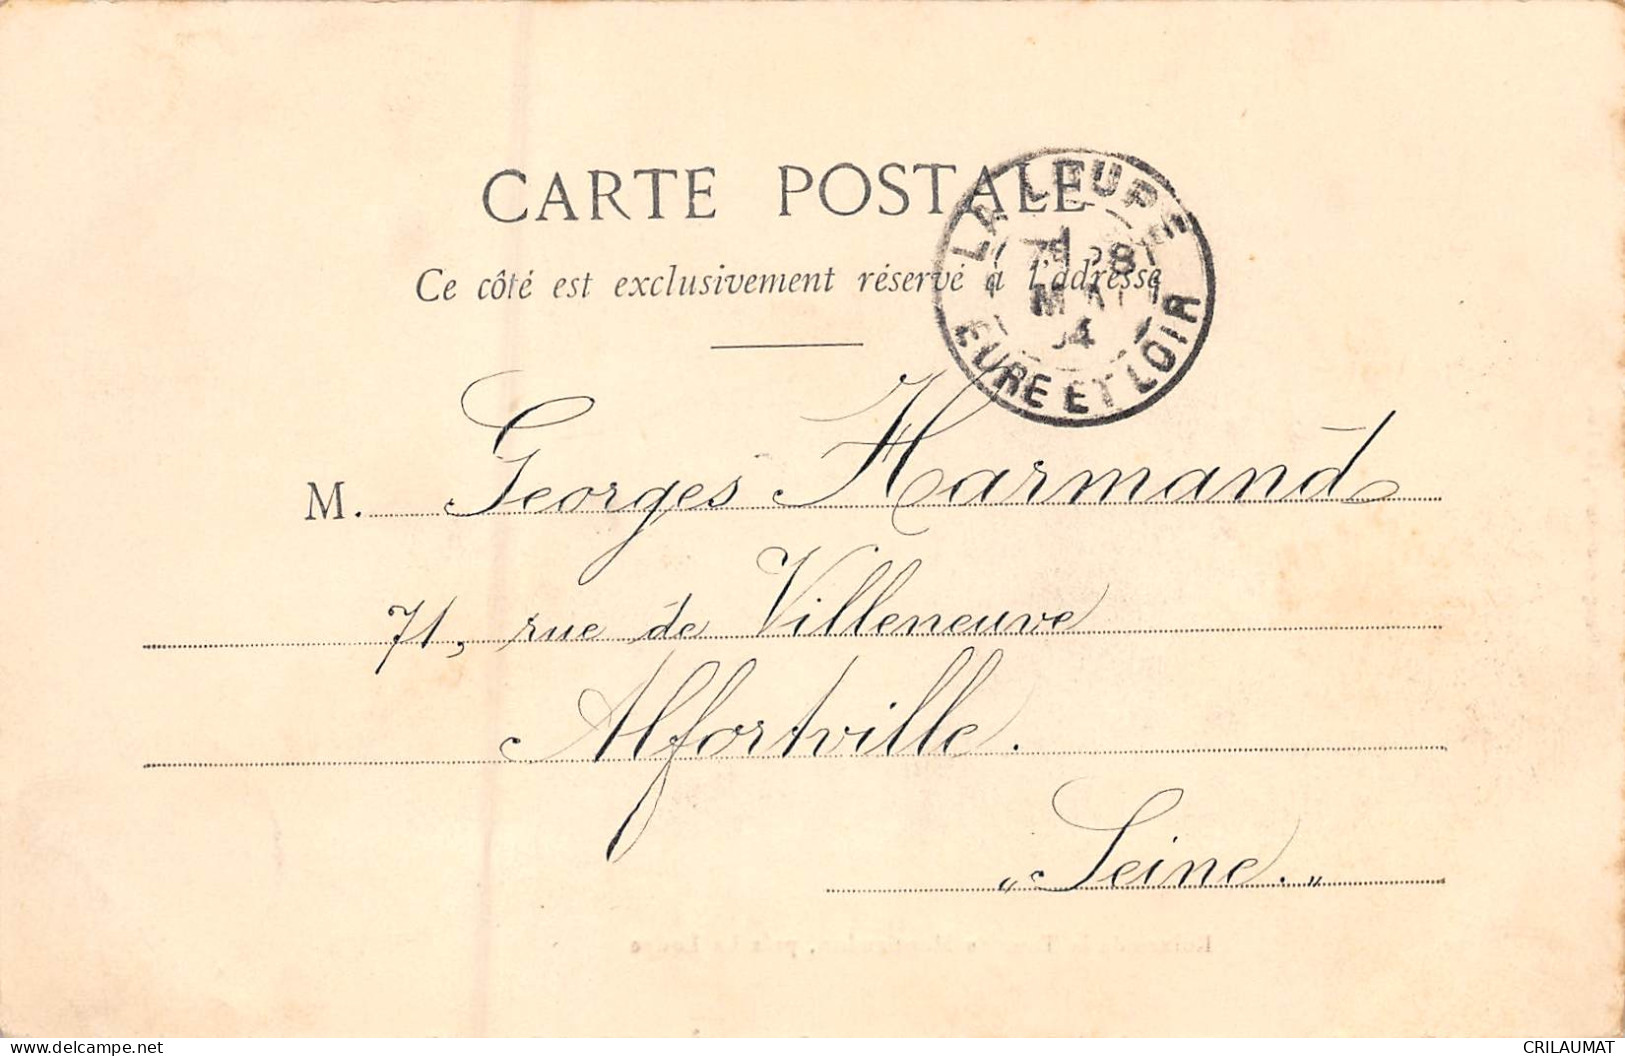 CARTE POSTALE
LA LOUPE
EURE ET LOIR
Ce côté est exclusivement réservé à l'adresse
M. Georges Harmand
71, rue de Villeneuve
Alfortville.
„Seine.„
www.delcampe.net
CRILAUMAT